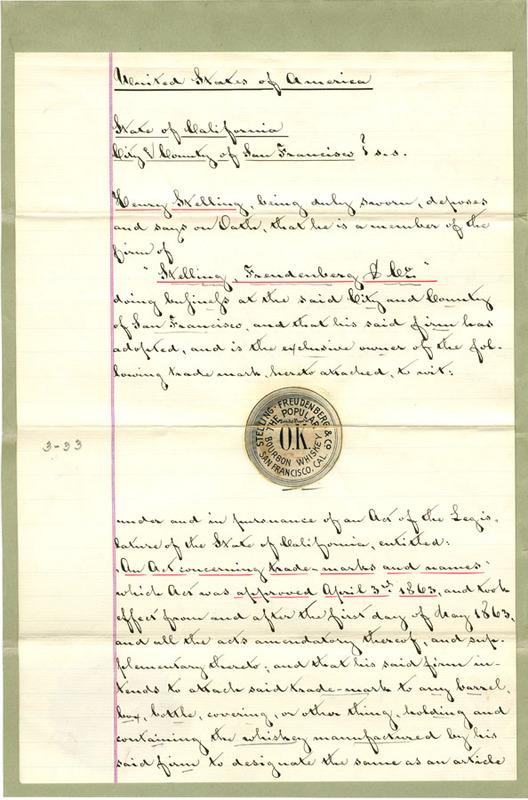 United States of America
State of California
City & County of San Francisco } s.s.
Henry Stelling, being duly sworn, deposes
and says on Oath, that he is a member of the
firm of
"Stelling, Freudenberg & Co."
doing business at the said City and County
of San Francisco, and that his said firm has
adopted, and is the exclusive owner of the fol-
lowing trade mark, hereto attached, to wit:
STELLING-FREUDENBERG & CO
THE POPULAR
O.K
BOURBON WHISKEY
SAN FRANCISCO, CAL
3-33
under and in pursuance of an Act of the Legis-
lature of the State of California, entitled:
"An Act concerning trade-marks and names"
which Act was approved April 3rd 1863, and took
effect from and after the first day of May 1863,
and all the acts amendatory thereof, and sup-
plementary thereto, and that his said firm in-
tends to attach said trade-mark to any barrel,
box, bottle, covering, or other thing, holding and
containing the whiskey manufactured by his
said firm to designate the same as an article